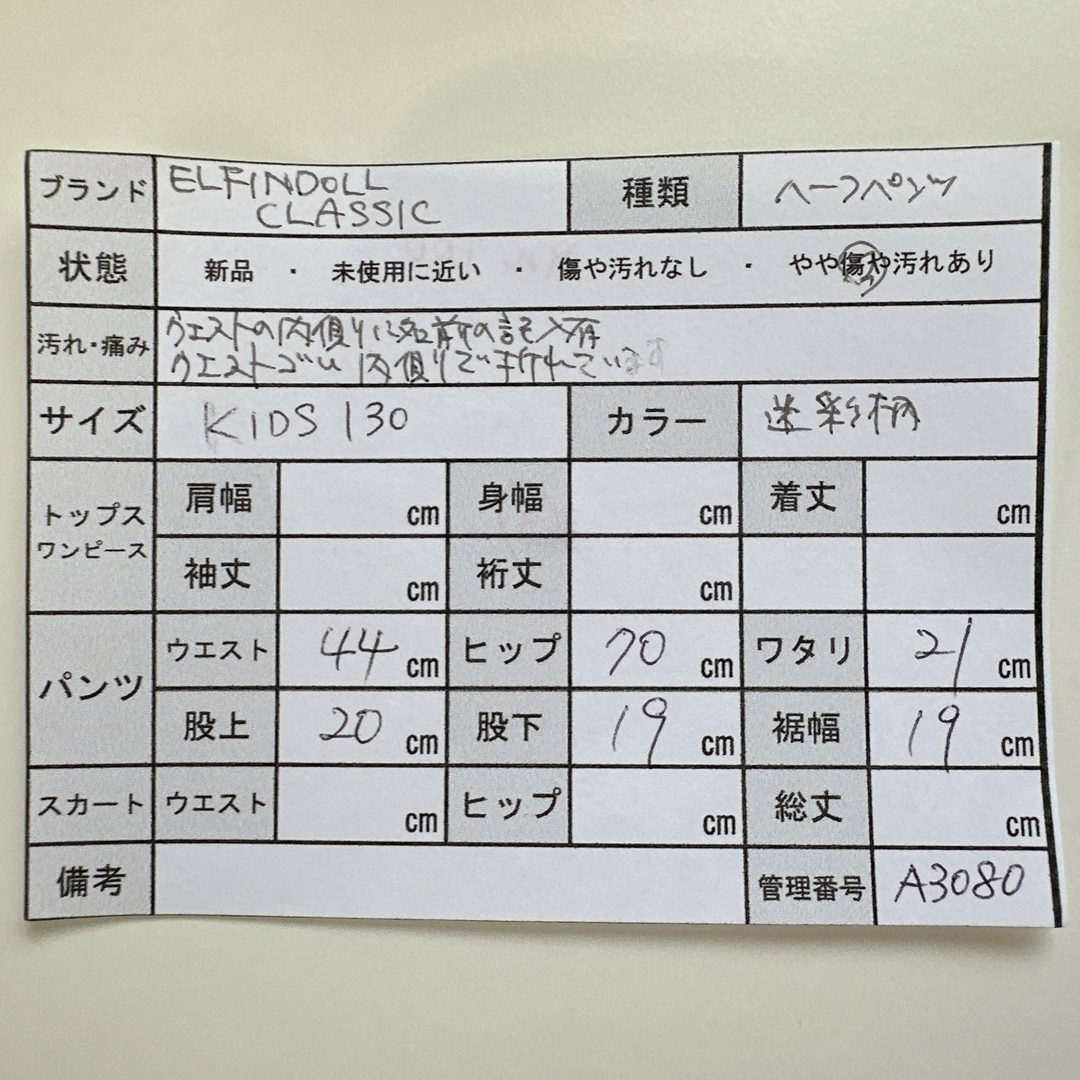 ブランド ELFINDOLL CLASSIC 種類 ハーフパンツ
状態 新品 ・ 未使用に近い ・ 傷や汚れなし ・ やや傷や汚れあり
汚れ・痛み ウエストの内側りに名前の記入有
ウエストゴム内側りで折れています
サイズ KIDS 130 カラー 迷彩柄
トップス ワンピース 肩幅 cm 身幅 cm 着丈 cm
袖丈 cm 裄丈 cm
パンツ ウエスト 44 cm ヒップ 70 cm ワタリ 21 cm
股上 20 cm 股下 19 cm 裾幅 19 cm
スカート ウエスト cm ヒップ cm 総丈 cm
備考 管理番号 A3080